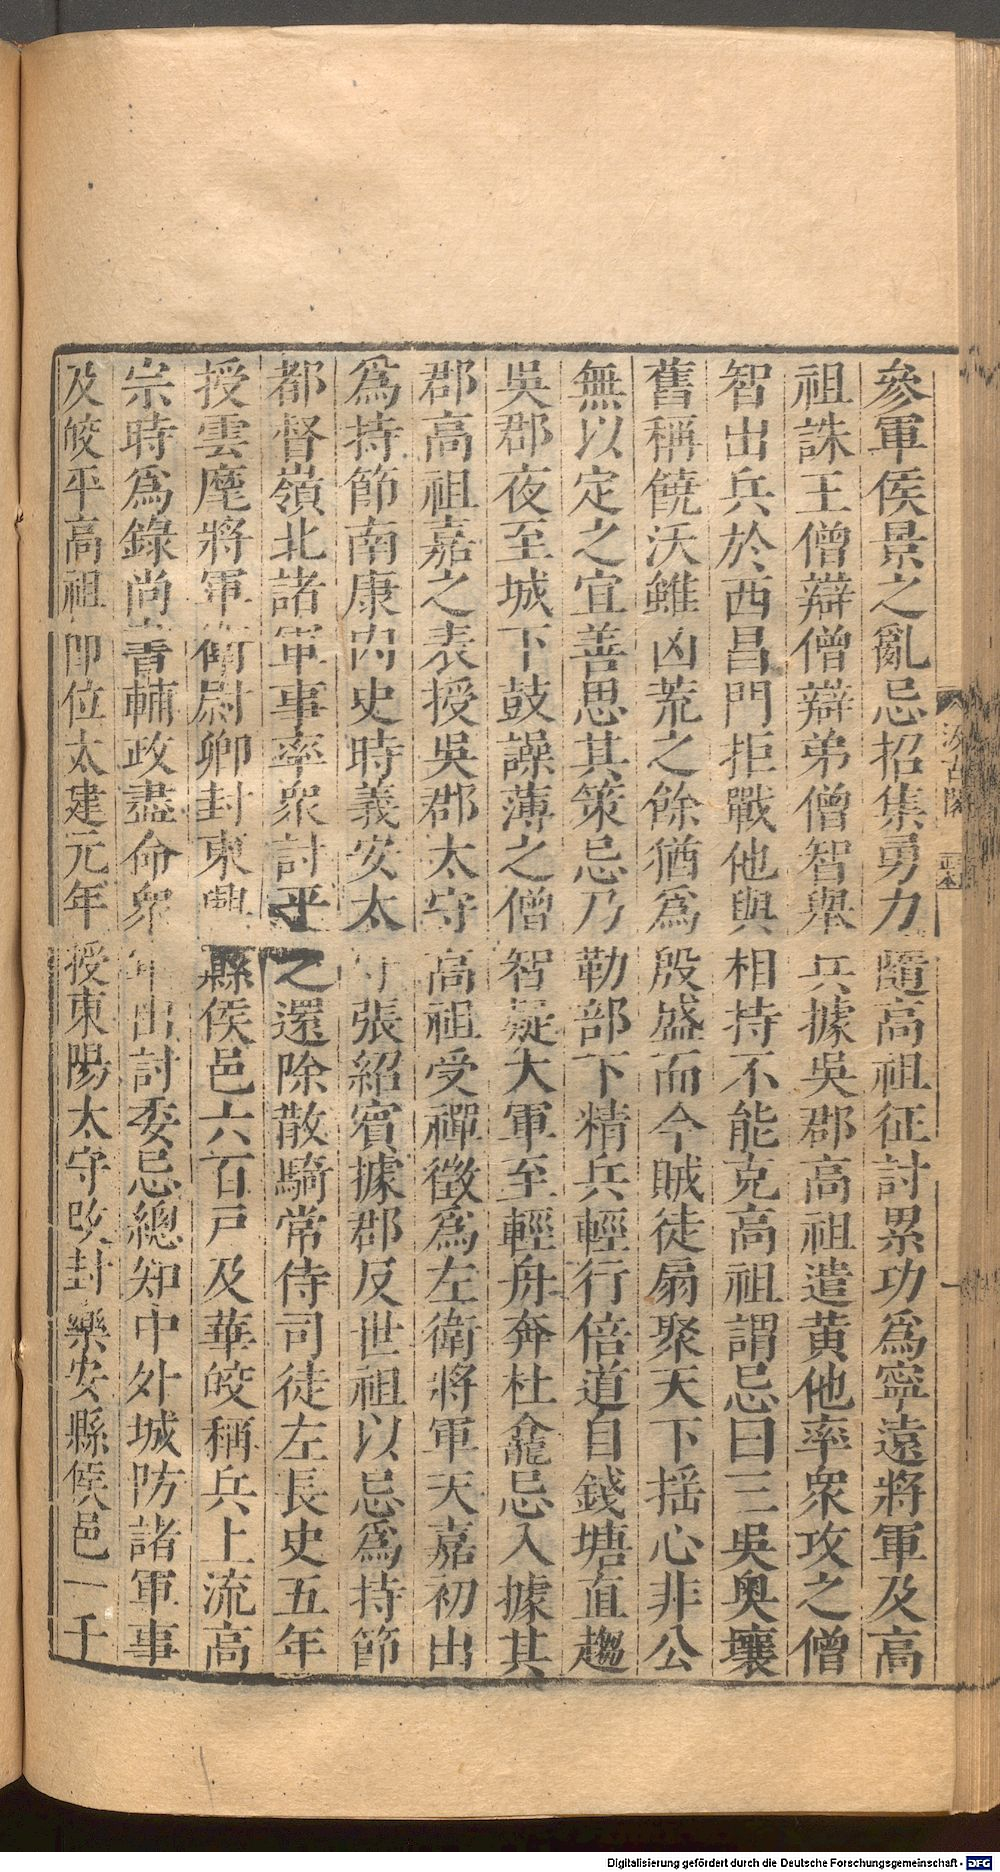 參軍侯景之亂忌招集勇力隨高祖征討累功爲寧遠將軍及高
祖誅王僧辯僧辯弟僧智舉兵據吳郡高祖遣黄他率衆攻之僧
智出兵於西昌門拒戰他與相持不能克高祖謂忌曰三吳奥壤
舊稱饒沃雖凶荒之餘猶爲殷盛而今賊徒扇聚天下揺心非公
無以定之宜善思其策忌乃勒部下精兵輕行倍道自錢塘直趨
吳郡夜至城下鼓譟薄之僧智疑大軍至輕舟奔杜龕忌入據其
郡高祖嘉之表授吳郡太守高祖受禪徵爲左衛將軍天嘉初出
爲持節南康内史時義安太守張紹賓據郡反世祖以忌爲持節
都督嶺北諸軍事率衆討平之還除散騎常侍司徒左長史五年
授雲麾將軍衛尉卿封東興縣侯邑六百戸及華皎稱兵上流高
宗時爲錄尚書輔政盡命衆軍出討委忌總知中外城防諸軍事
及皎平高祖即位太建元年授東陽太守改封樂安縣侯邑一千
汲古閣
正本
Digitalisierung gefördert durch die Deutsche Forschungsgemeinschaft - DFG